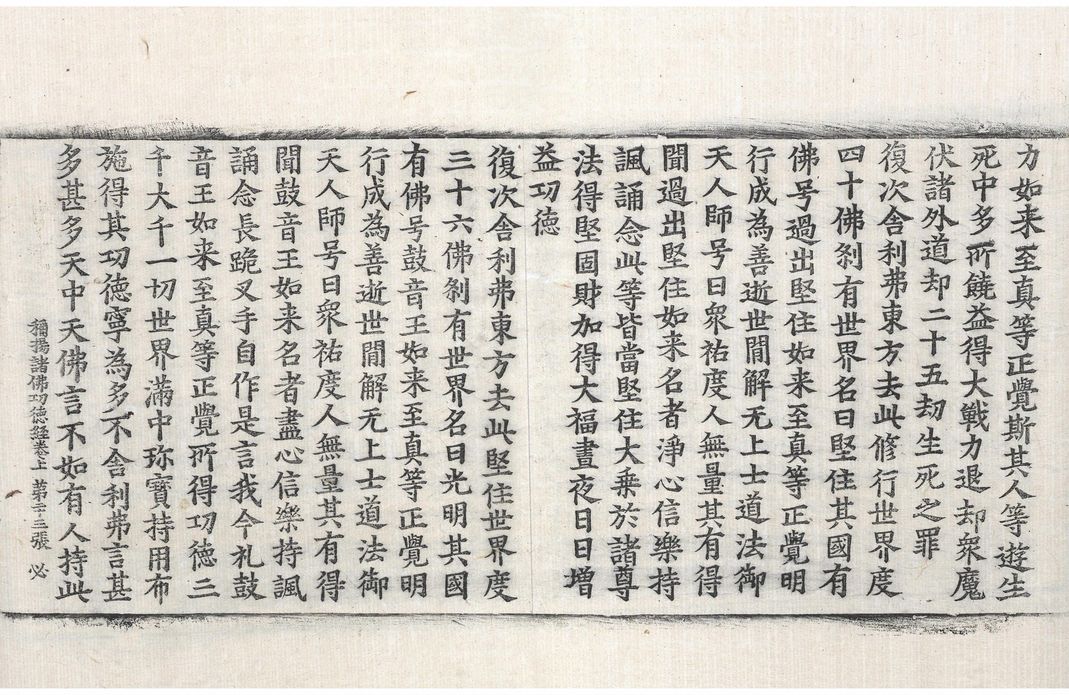 力如来至真等正覺斯其人等遊生
死中多所饒益得大戰力退却衆魔
伏諸外道却二十五劫生死之罪
復次舍利弗東方去此修行世界度
四十佛刹有世界名曰堅住其國有
佛号過出堅住如来至真等正覺明
行成為善逝世間解无上士道法御
天人師号曰衆祐度人無量其有得
聞過出堅住如来名者淨心信樂持
諷誦念此等皆當堅住大乗於諸尊
法得堅固財加得大福晝夜日日增
益功德
復次舍利弗東方去此堅住世界度
三十六佛刹有世界名曰光明其國
有佛号鼓音王如来至真等正覺明
行成為善逝世間解无上士道法御
天人師号曰衆祐度人無量其有得
聞鼓音王如来名者盡心信樂持諷
誦念長跪叉手自作是言我今礼鼓
音王如来至真等正覺所得功德三
千大千一切世界滿中珎寶持用布
施得其功德寧為多不舍利弗言甚
多甚多天中天佛言不如有人持此
稱揚諸佛功德經卷上 第二十三張 必